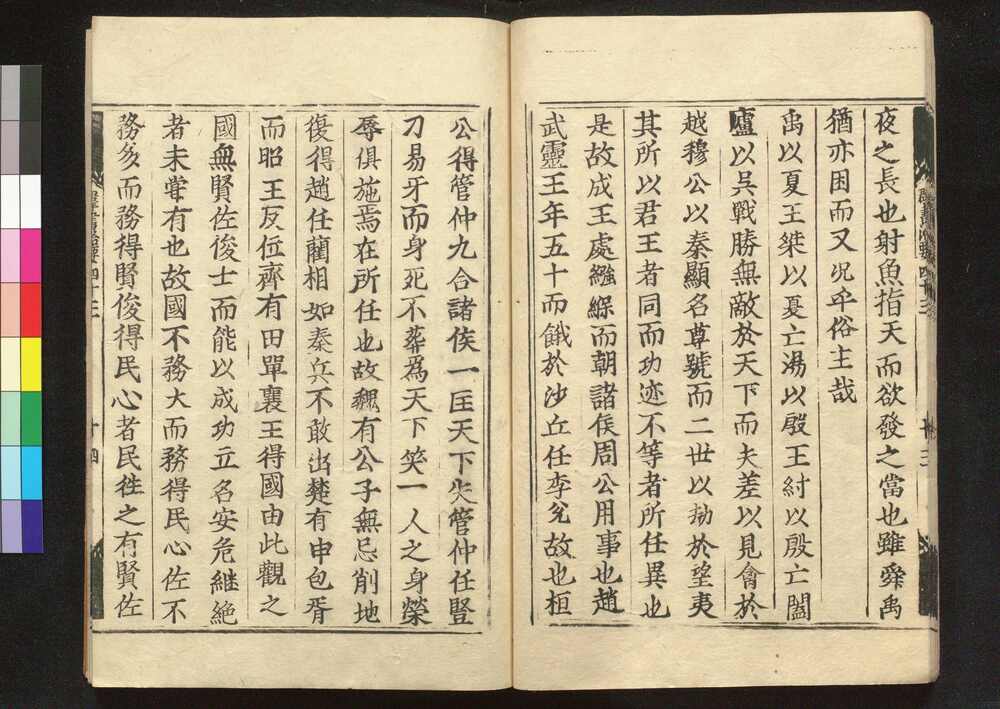 夜之長也射魚指天而欲發之當也雖舜禹
猶亦困而又况乎俗主哉
禹以夏王桀以夏亡湯以殷王紂以殷亡闔
廬以吳戰勝無敵於天下而夫差以見會於
越穆公以秦顯名尊號而二世以劫於望夷
其所以君王者同而功迹不等者所任異也
是故成王處繈緥而朝諸侯周公用事也趙
武靈王年五十而餓於沙丘任李兊故也桓
公得管仲九合諸侯一匡天下失管仲任豎
刁易牙而身死不葬為天下笑一人之身榮
辱俱施焉在所任也故魏有公子無忌削地
復得趙任藺相如秦兵不敢出楚有申包胥
而昭王反位齊有田單襄王得國由此觀之
國無賢佐俊士而能以成功立名安危継絕
者未甞有也故國不務大而務得民心佐不
務多而務得賢俊得民心者民徃之有賢佐
十四